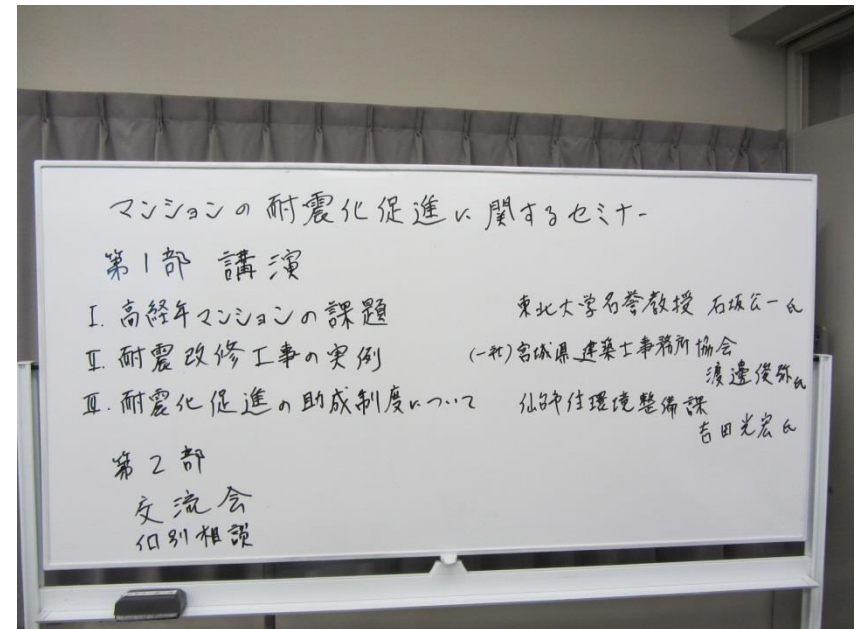 マンションの耐震化促進に関するセミナー
第1部 講演
I. 高経年マンションの課題 東北大学名誉教授 石坂公一氏
II. 耐震改修工事の実例 (一社)宮城県建築士事務所協会
渡邊俊弥氏
III. 耐震化促進の助成制度について 仙台市住環境整備課
吉田光宏氏
第2部
交流会
個別相談